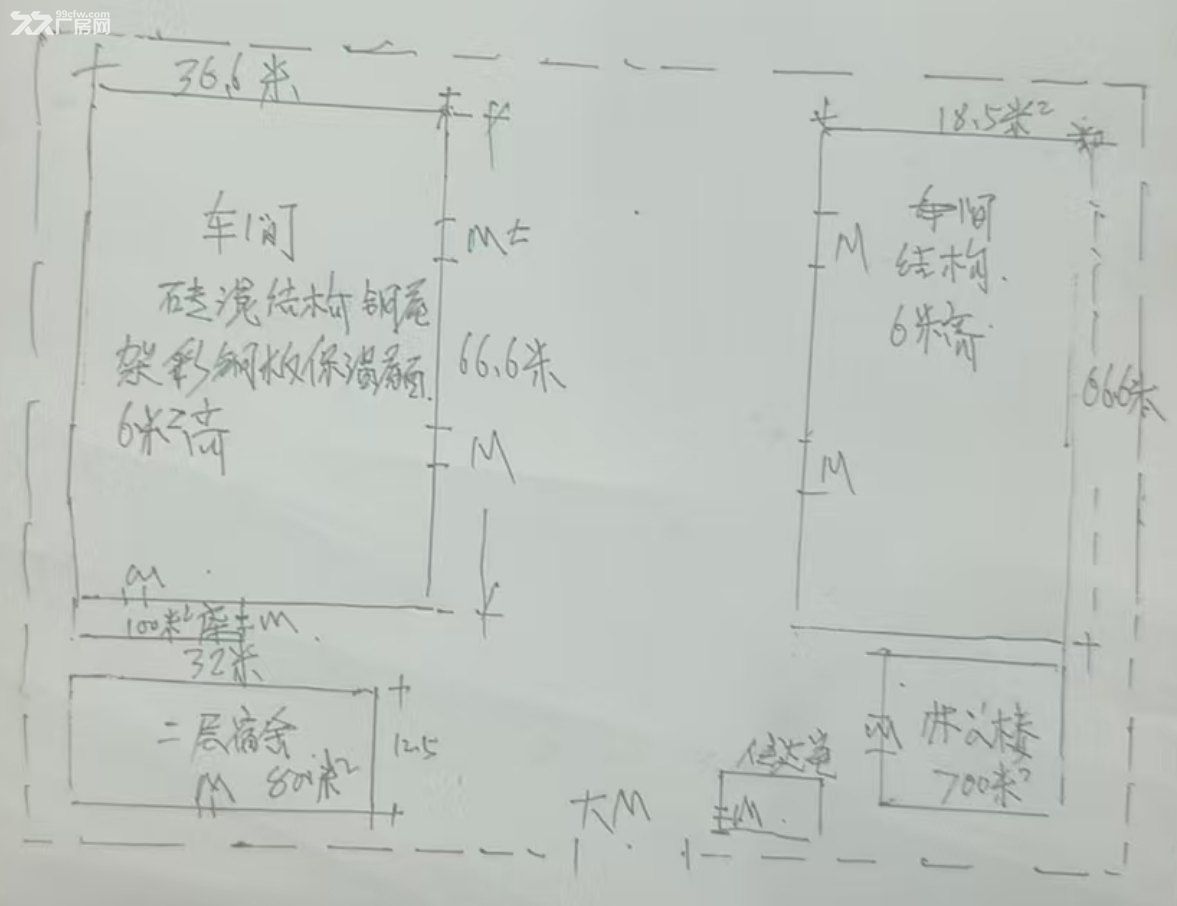 99cfw.com
厂房网
36.6米
18.5米²
车间
M
砖混结构钢屋
架彩钢板保温
6米高
66.6米
M
车间
结构.
6米高.
M
M
66.6米
M
100米²库
M
32米
二层宿舍
800米²
M
12.5
大M
传达室
M
办公楼
700米²
M